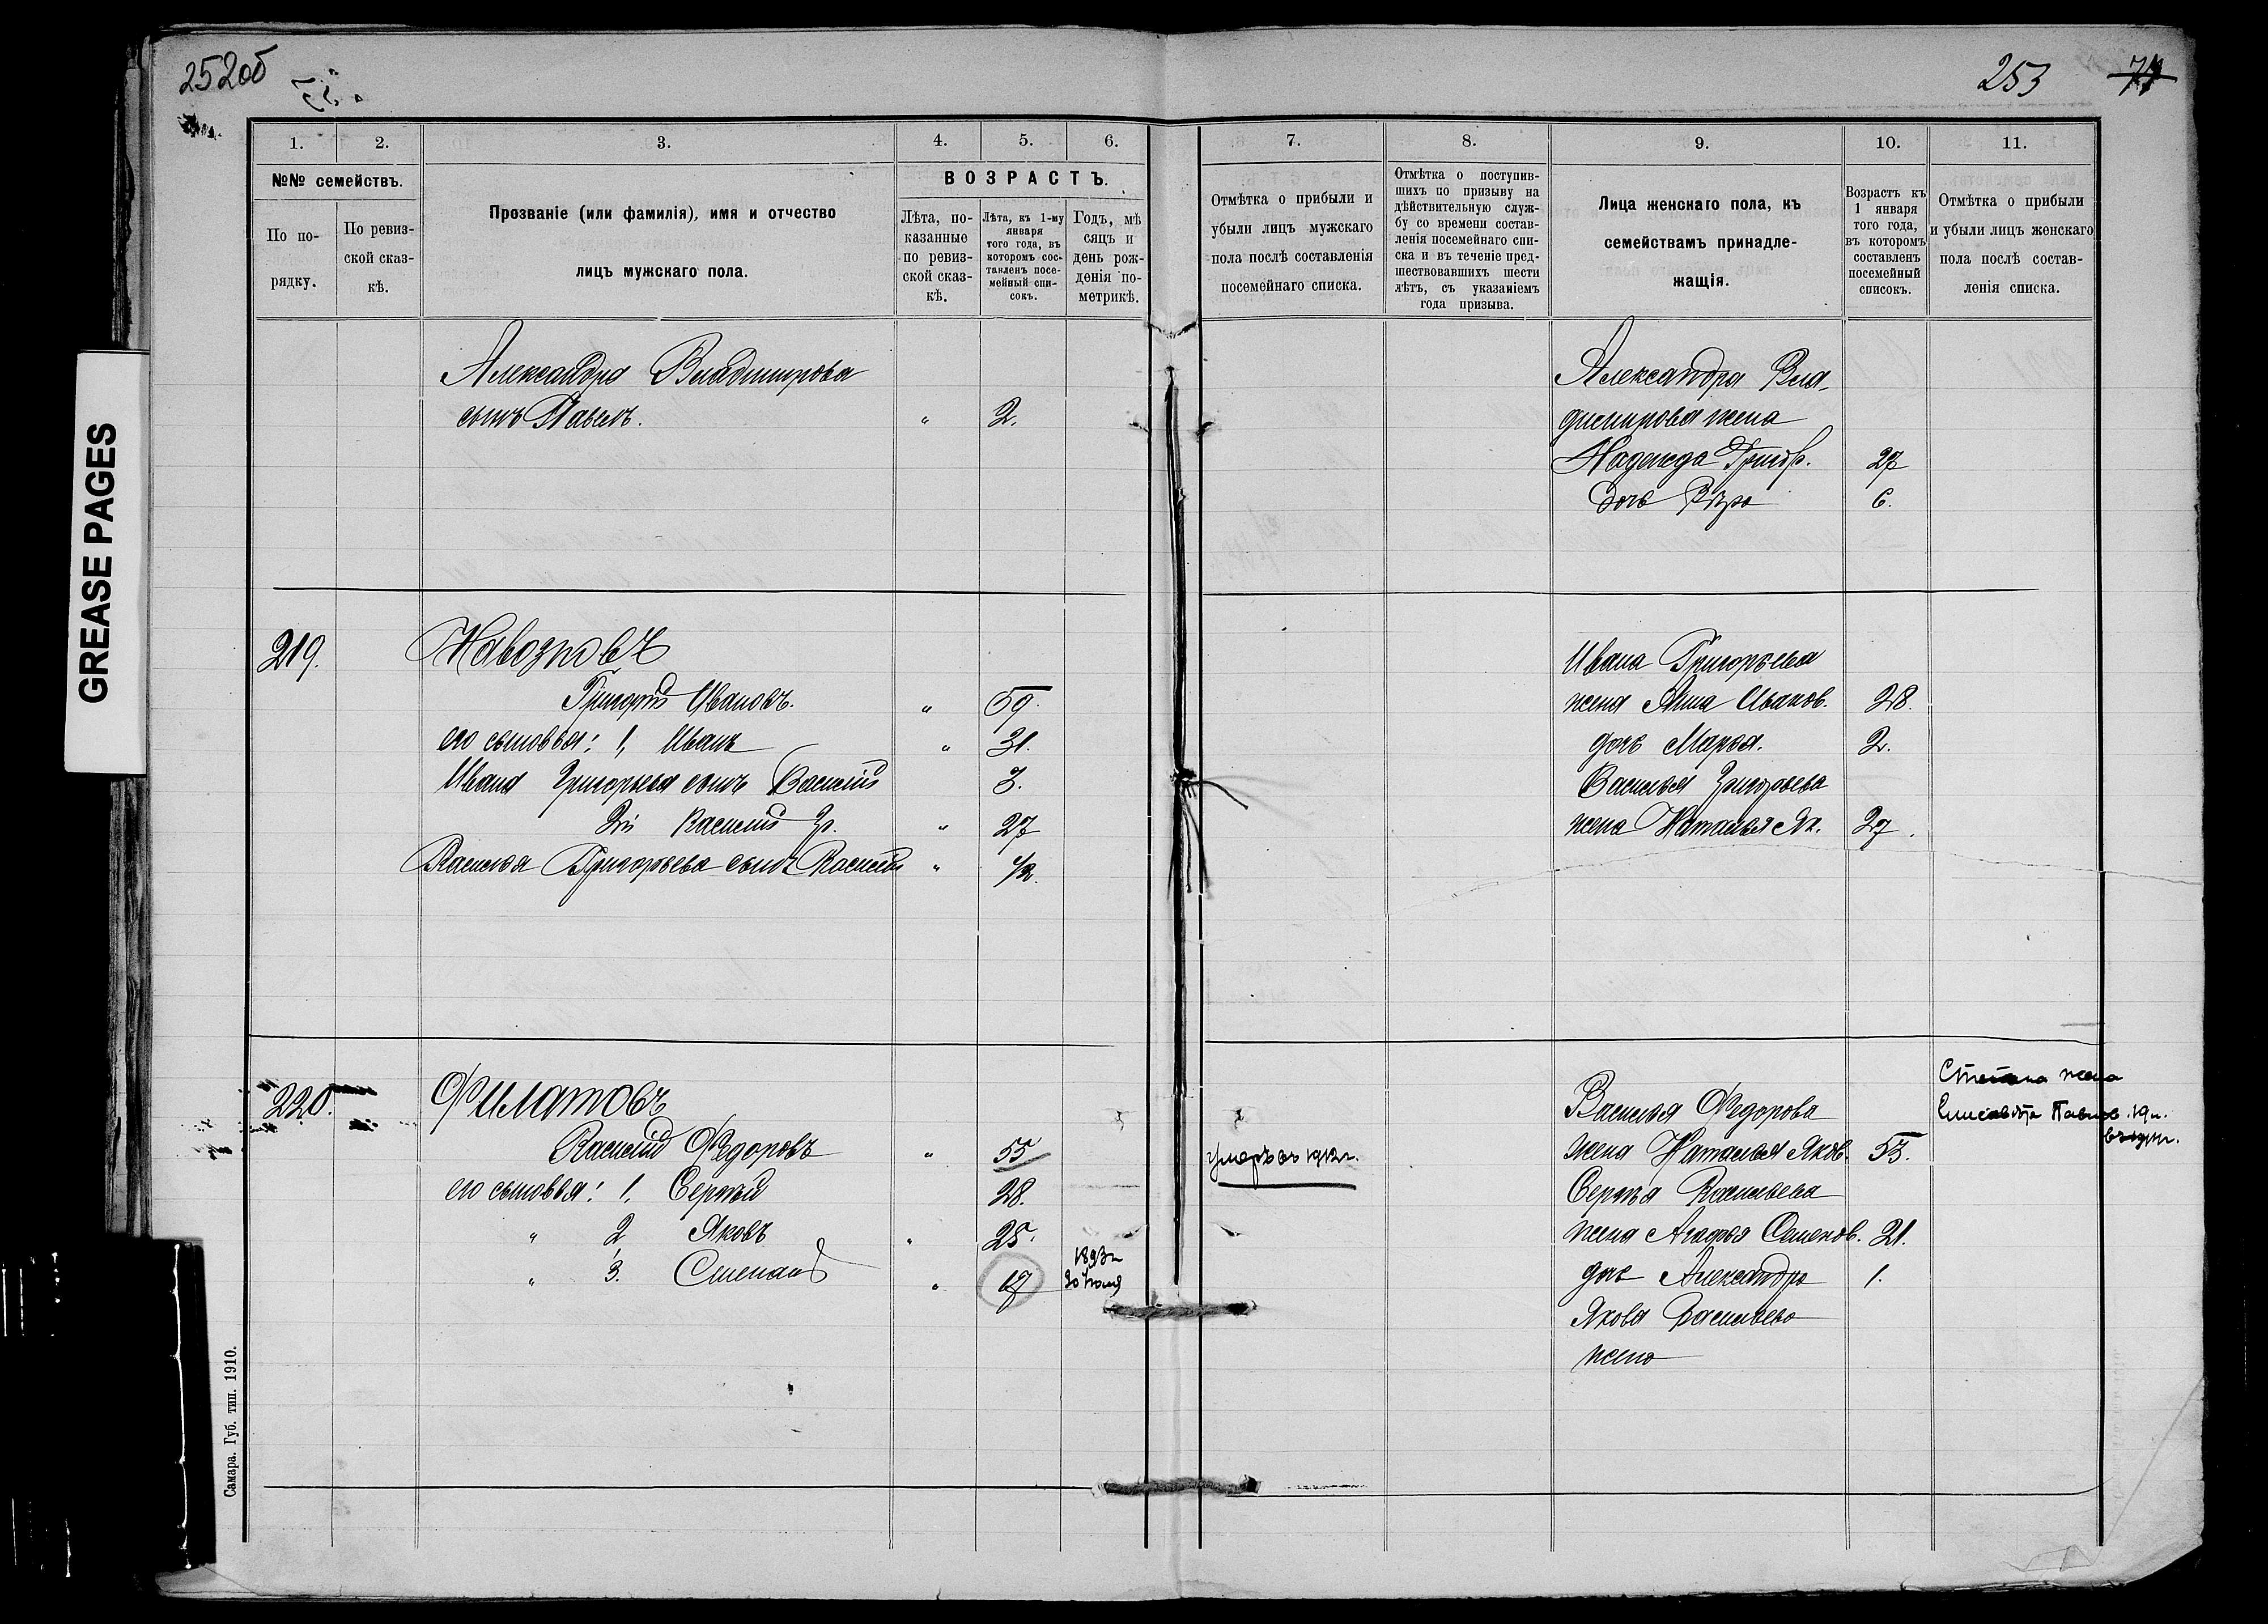 252об
253
71
GREASE PAGES
1.
2.
3.
4.
5.
6.
№№ семействъ.
По по-
рядку.
По ревиз-
ской сказ-
кѣ.
Прозваніе (или фамилія), имя и отчество
лицъ мужскаго пола.
ВОЗРАСТЪ.
Лѣта, по-
казанные
по ревиз-
ской сказ-
кѣ.
Лѣта, къ 1-му
января
того года, въ
которомъ сос-
тавленъ посе-
мейный спи-
сокъ.
Годъ, мѣ
сяцъ и
день рож-
денія по-
метрикѣ.
7.
8.
9.
10.
11.
Отмѣтка о прибыли и
убыли лицъ мужскаго
пола послѣ составленія
посемейнаго списка.
Отмѣтка о поступив-
шихъ по призыву на
дѣйствительную служ-
бу со времени состав-
ленія посемейнаго спи-
ска и въ теченіе пред-
шествовавшихъ шести
лѣтъ, съ указаніемъ
года призыва.
Лица женскаго пола, къ
семействамъ принадле-
жащія.
Возрастъ къ
1 января
того года,
въ которомъ
составленъ
посемейный
списокъ.
Отмѣтка о прибыли
и убыли лицъ женскаго
пола послѣ состав-
ленія списка.
Александра Владимирова
сынъ Павелъ. " 2.
Александра Вла-
димирова жена
Надежда Григор. 27
дочь Вѣра 6.
219. Навозновъ
Григорій Ивановъ. " 59.
его сыновья: 1, Иванъ " 31.
Ивана Григорьева сынъ Василій 3.
2й Василій Гр. " 27
Василья Григорьева сынъ Василій " 1/2.
Ивана Григорьева
жена Анна Иванов. 28.
дочь Марья. 2.
Василья Григорьева
жена Наталья Як. 27.
220. Филатовъ
Василій Федоровъ " 55
его сыновья: 1, Сергѣй 28.
" 2 Яковъ " 25.
" 3. Степанъ " 17 1893г
30 Іюля
умеръ въ 1912г.
Василья Федорова
жена Наталья Яков. 53.
Сергѣя Васильева
жена Агафья Семенов. 21.
дочь Александра 1.
Якова Васильева
жена
Степана жена
Елисавѣта Павлов. 19л.
Самара. Губ. тип. 1910.